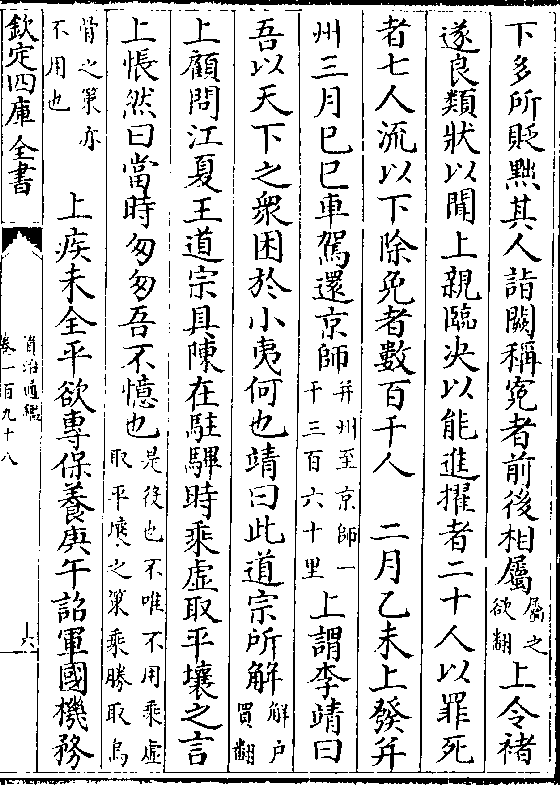 下多所貶黜其人詣闕稱寃者前後相屬屬之欲翻上令禇
遂良類狀以聞上親臨决以能進擢者二十人以罪死
者七人流以下除免者數百千人 二月乙未上發并
州三月己巳車駕還京師并州至京師一千三百六十里上謂李靖曰
吾以天下之衆困於小夷何也靖曰此道宗所解解户買翻
上顧問江夏王道宗具陳在駐驆時乘虚取平壤之言
上悵然曰當時匆匆吾不憶也是役也不唯不用乘虚取平壤之策乘勝取烏
骨之策亦不用也 上疾未全平欲專保養庚午詔軍國機務
欽定四庫全書
資治通鑑
卷一百九十八
六